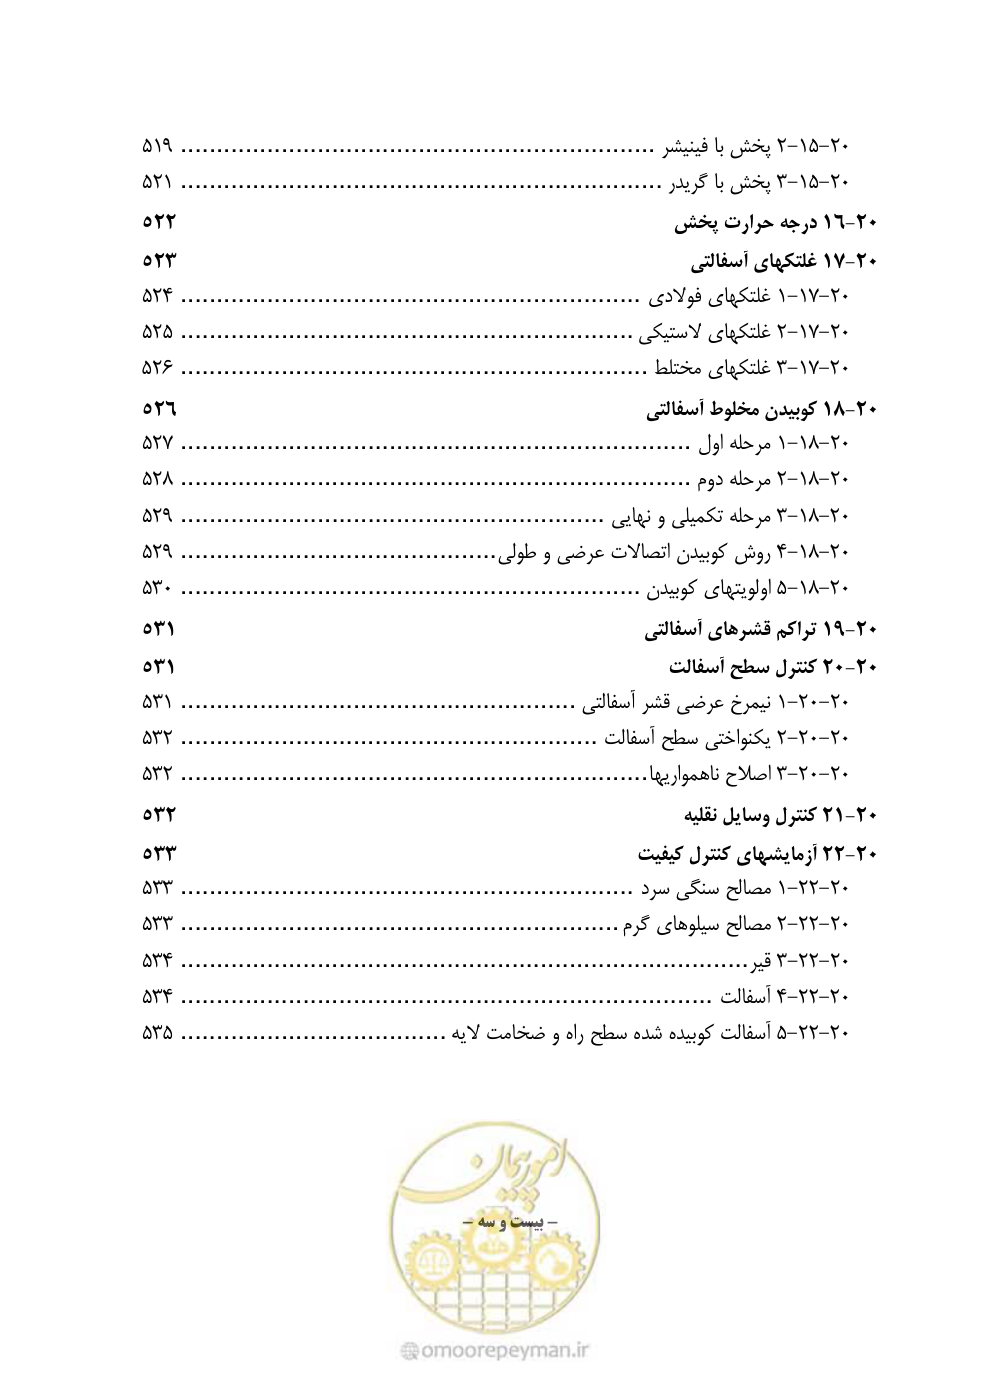 ۲۰-۱۵-۲ پخش با فینیشر ................................................................. ۵۱۹
۲۰-۱۵-۳ پخش با گریدر .................................................................. ۵۲۱
۲۰-۱۶ درجه حرارت پخش ۵۲۲
۲۰-۱۷ غلتکهای آسفالتی ۵۲۳
۲۰-۱۷-۱ غلتکهای فولادی ................................................................ ۵۲۴
۲۰-۱۷-۲ غلتکهای لاستیکی ............................................................... ۵۲۵
۲۰-۱۷-۳ غلتکهای مختلط ................................................................. ۵۲۶
۲۰-۱۸ کوبیدن مخلوط آسفالتی ۵۲۶
۲۰-۱۸-۱ مرحله اول ...................................................................... ۵۲۷
۲۰-۱۸-۲ مرحله دوم ...................................................................... ۵۲۸
۲۰-۱۸-۳ مرحله تکمیلی و نهایی .......................................................... ۵۲۹
۲۰-۱۸-۴ روش کوبیدن اتصالات عرضی و طولی............................................ ۵۲۹
۲۰-۱۸-۵ اولویتهای کوبیدن ............................................................... ۵۳۰
۲۰-۱۹ تراکم قشرهای آسفالتی ۵۳۱
۲۰-۲۰ کنترل سطح آسفالت ۵۳۱
۲۰-۲۰-۱ نیمرخ عرضی قشر آسفالتی ...................................................... ۵۳۱
۲۰-۲۰-۲ یکنواختی سطح آسفالت ......................................................... ۵۳۲
۲۰-۲۰-۳ اصلاح ناهمواریها................................................................. ۵۳۲
۲۰-۲۱ کنترل وسایل نقلیه ۵۳۲
۲۰-۲۲ آزمایشهای کنترل کیفیت ۵۳۳
۲۰-۲۲-۱ مصالح سنگی سرد .............................................................. ۵۳۳
۲۰-۲۲-۲ مصالح سیلوهای گرم ............................................................. ۵۳۳
۲۰-۲۲-۳ قیر............................................................................... ۵۳۴
۲۰-۲۲-۴ آسفالت .......................................................................... ۵۳۴
۲۰-۲۲-۵ آسفالت کوبیده شده سطح راه و ضخامت لایه ..................................... ۵۳۵
امور پیمان
- بیست و سه -
@omoorepeyman.ir